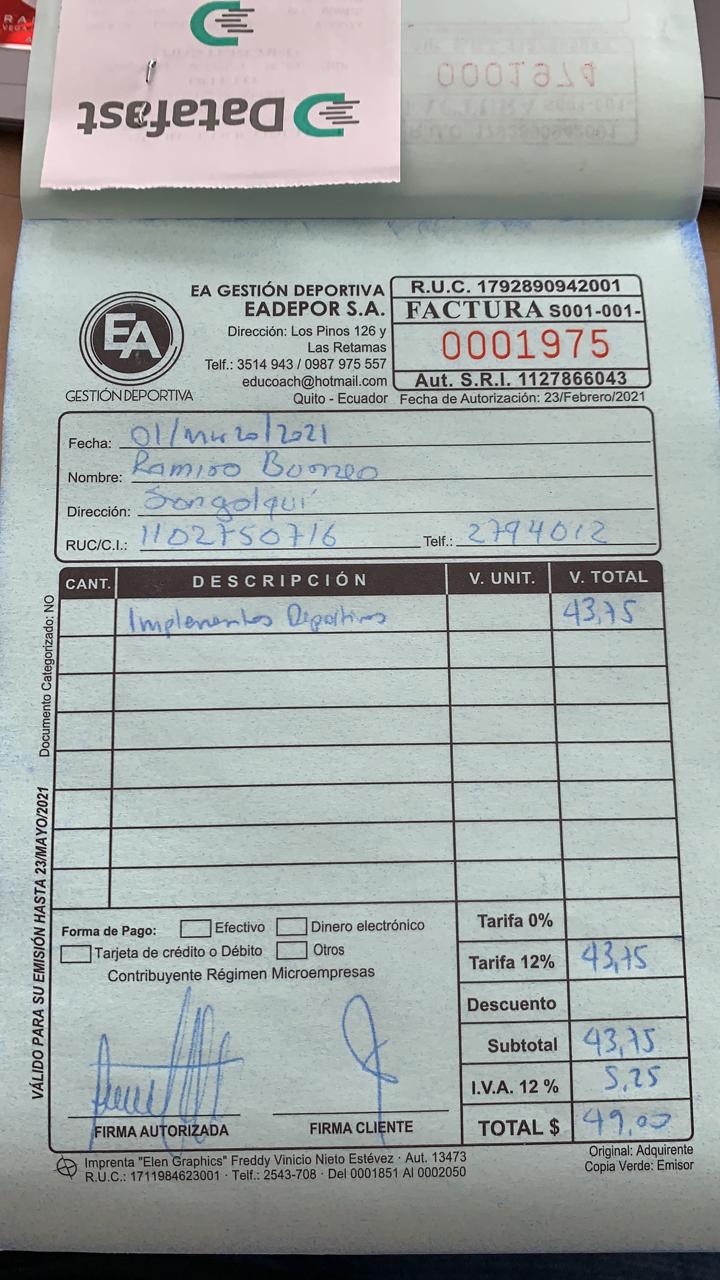 Datafast
0001974
R.U.C. 1792890942001
EA
GESTIÓN DEPORTIVA
EA GESTIÓN DEPORTIVA
EADEPOR S.A.
Dirección: Los Pinos 126 y
Las Retamas
Telf.: 3514 943 / 0987 975 557
educoach@hotmail.com
Quito - Ecuador
R.U.C. 1792890942001
FACTURA S001-001-
0001975
Aut. S.R.I. 1127866043
Fecha de Autorización: 23/Febrero/2021
Fecha: 01/marzo/2021
Nombre: Ramiro
Dirección: Sangolquí
RUC/C.I.: 1102750716 Telf.: 2794012
CANT. DESCRIPCIÓN V. UNIT. V. TOTAL
Implementos Deportivos 43,75
Documento Categorizado: NO
VÁLIDO PARA SU EMISIÓN HASTA 23/MAYO/2021
Forma de Pago: Efectivo Dinero electrónico
Tarjeta de crédito o Débito Otros
Contribuyente Régimen Microempresas
Tarifa 0%
Tarifa 12% 43,75
Descuento
Subtotal 43,75
I.V.A. 12 % 5,25
TOTAL $ 49,00
FIRMA AUTORIZADA FIRMA CLIENTE
Imprenta "Elen Graphics" Freddy Vinicio Nieto Estévez · Aut. 13473
R.U.C.: 1711984623001 · Telf.: 2543-708 · Del 0001851 Al 0002050
Original: Adquirente
Copia Verde: Emisor